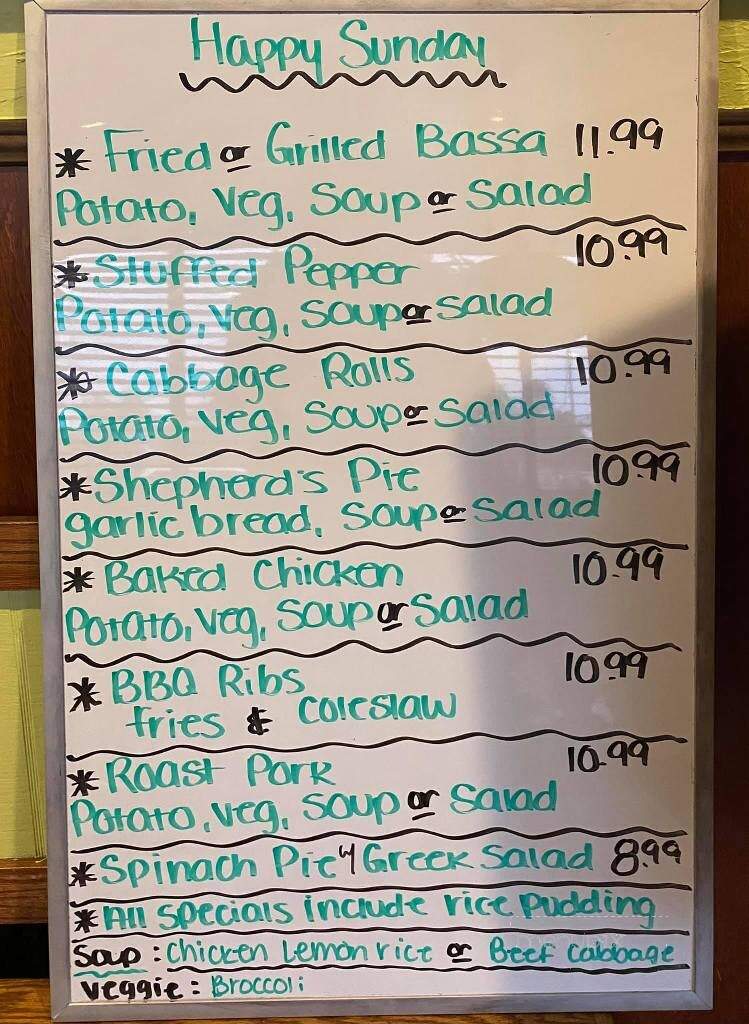 Happy Sunday
* Fried or Grilled Bassa 11.99
Potato, Veg, Soup or Salad
* Stuffed Pepper 10.99
Potato, Veg, Soup or Salad
* Cabbage Rolls 10.99
Potato, Veg, Soup or Salad
* Shepherd's Pie 10.99
garlic bread, Soup or Salad
* Baked Chicken 10.99
Potato, Veg, Soup or Salad
* BBQ Ribs 10.99
fries & Coleslaw
* Roast Pork 10.99
Potato, Veg, Soup or Salad
* Spinach Pie w/ Greek Salad 8.99
* All Specials include rice pudding
Soup : Chicken Lemon rice or Beef Cabbage
Veggie : Broccoli